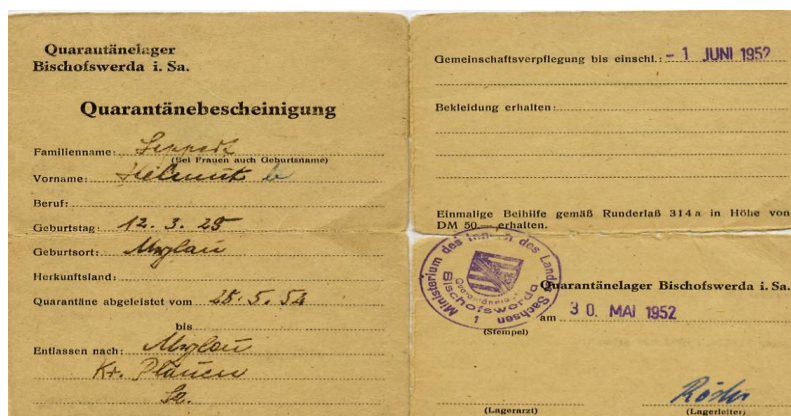 Quarantänelager
Bischofswerda i. Sa.
Quarantänebescheinigung
Familienname:
(bei Frauen auch Geburtsname)
Vorname: Helmut
Beruf:
Geburtstag: 12. 3. 25
Geburtsort: Mylau
Herkunftsland:
Quarantäne abgeleistet vom 28. 5. 52
bis
Entlassen nach: Mylau
Kr. Plauen
Sa.
Gemeinschaftsverpflegung bis einschl.: - 1 JUNI 1952
Bekleidung erhalten:
Einmalige Beihilfe gemäß Runderlaß 314 a in Höhe von
DM 50.— erhalten.
Ministerium des Innern des Landes Sachsen
Bischofswerda
1
(Stempel)
Quarantänelager Bischofswerda i. Sa.
am 30. MAI 1952
(Lagerarzt)
(Lagerleiter)